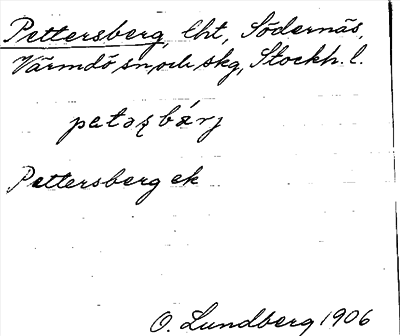 Pettersberg, lht, Södernäs,
Värmdö sn och skg, Stockh. l.
petaʂbárj
Pettersberg ek
O. Lundberg 1906